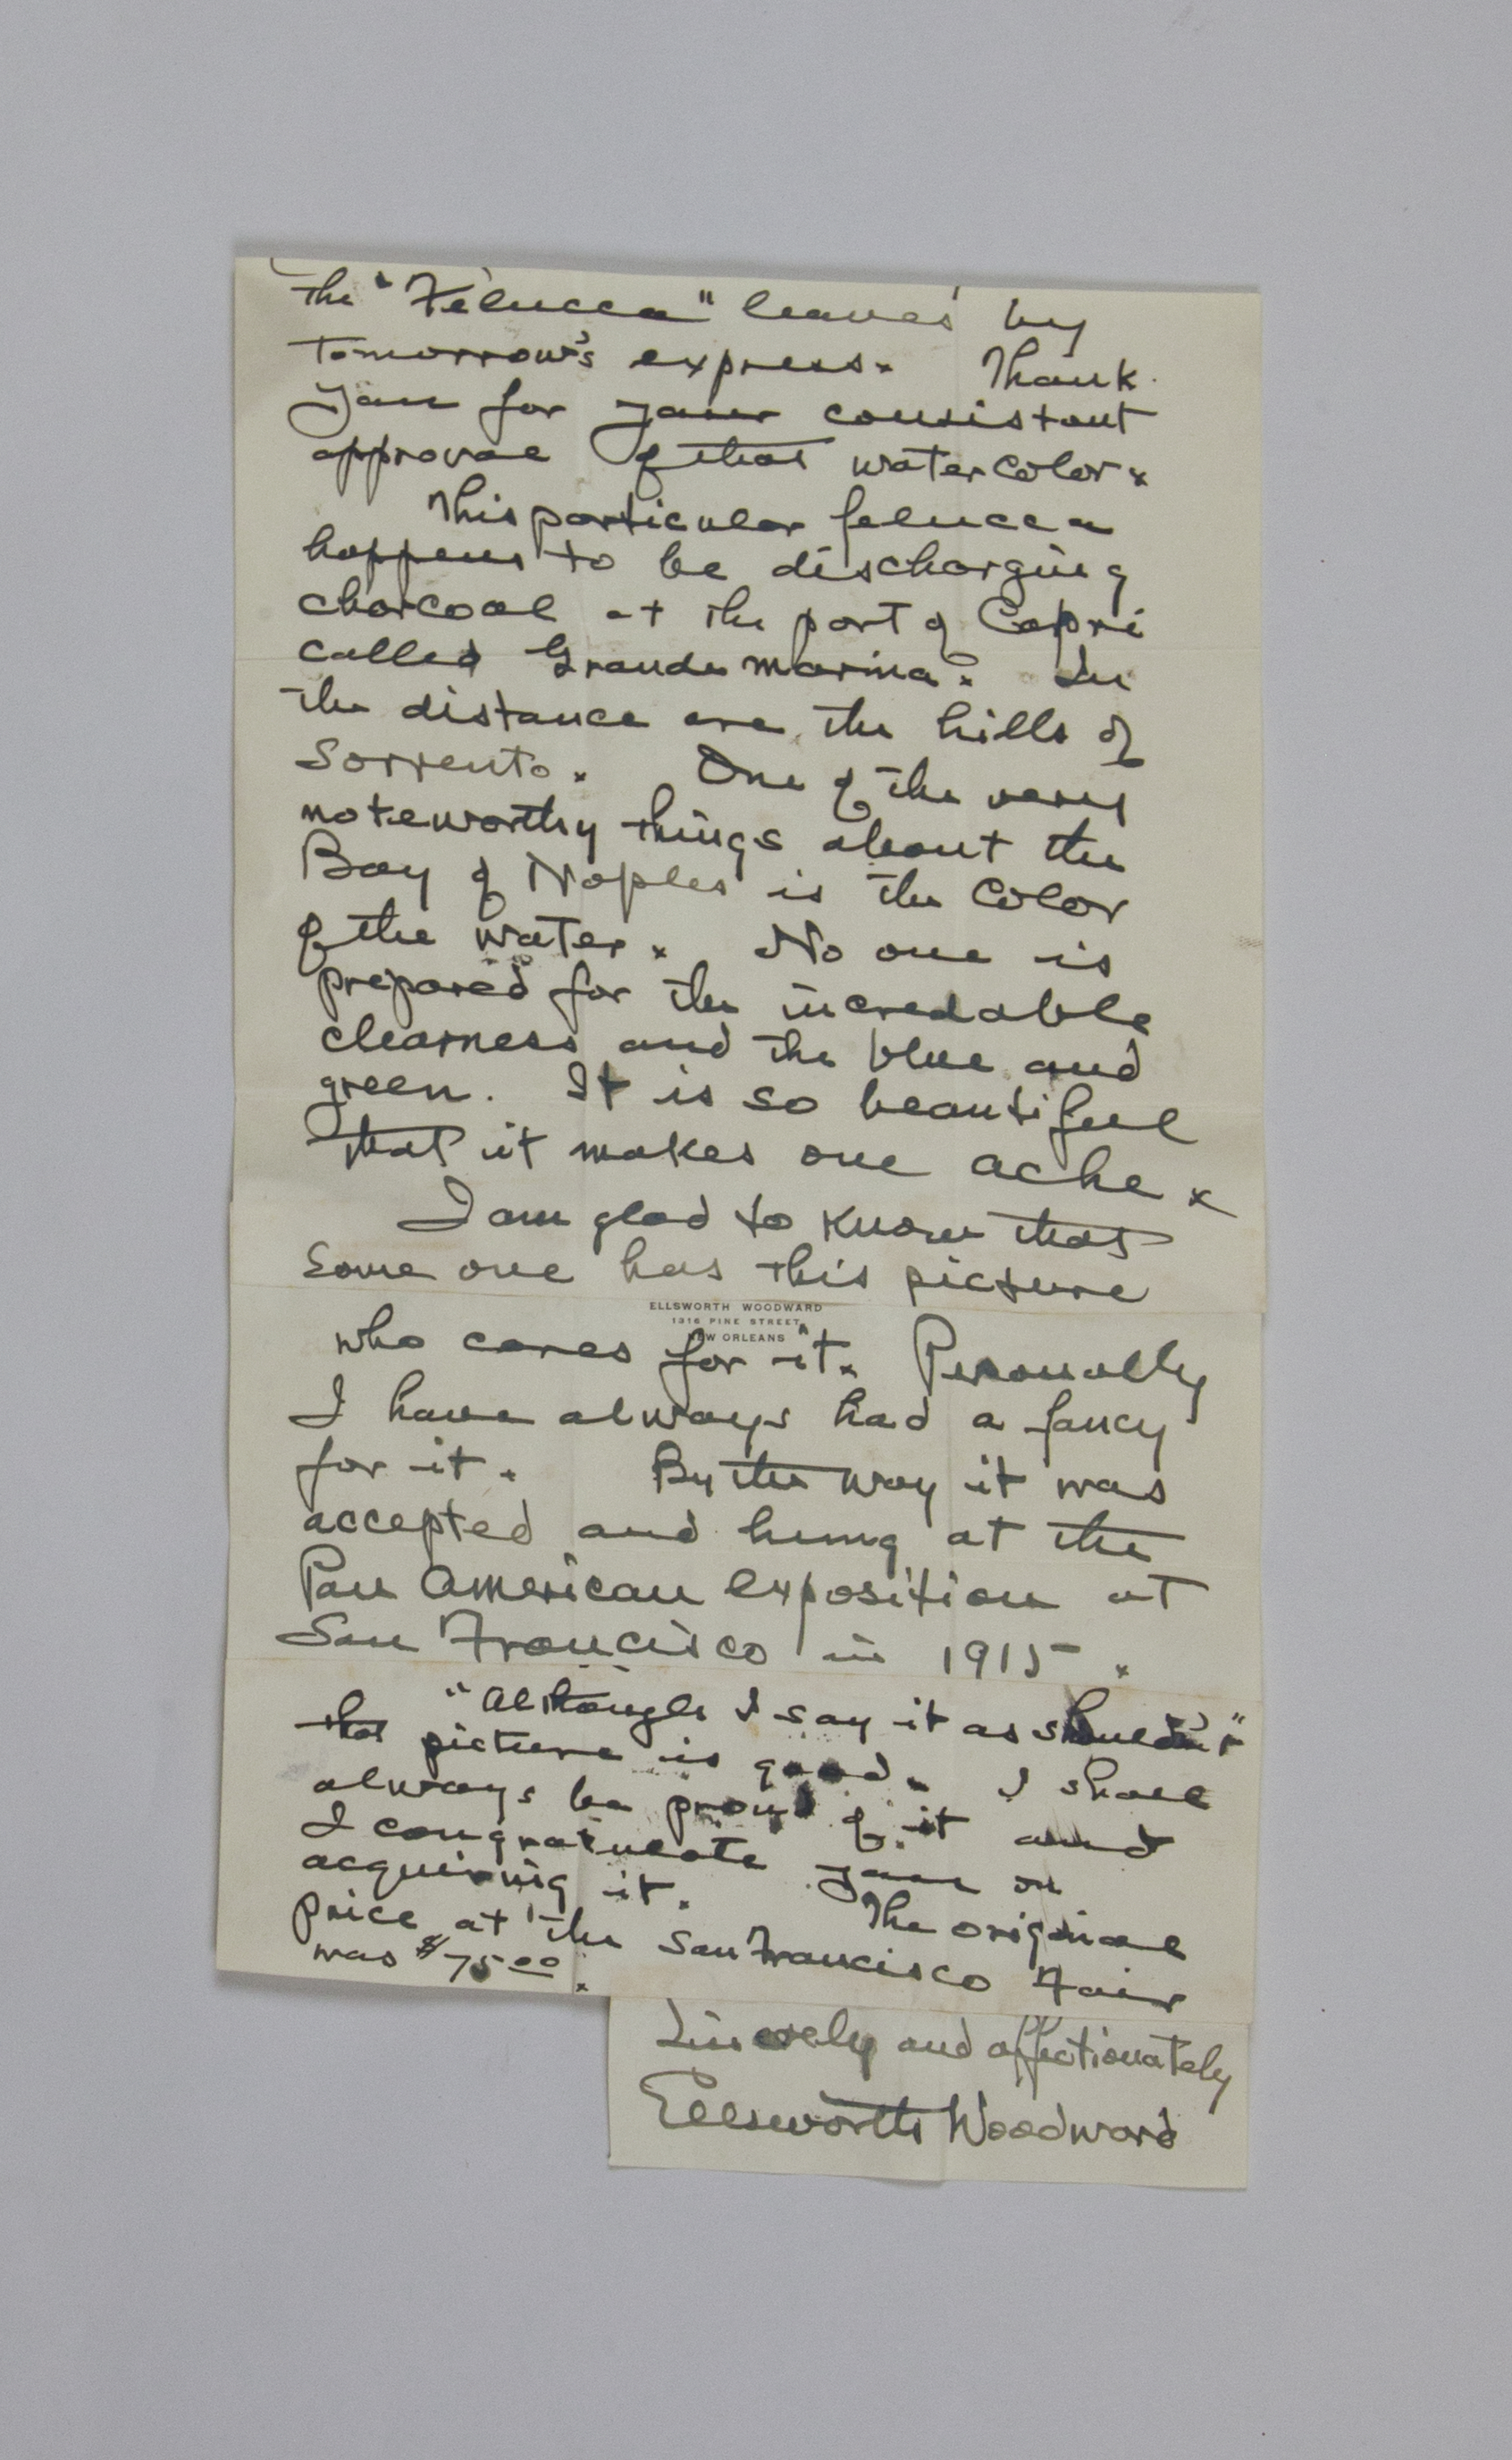 the "Felucca" leaves by
tomorrow's express. Thank
you for your consistant
approval of that watercolor.
This particular felucca
happens to be discharging
charcoal at the port of Capri
called Grande marina. In
the distance are the hills of
Sorrento. One of the very
noteworthy things about the
Bay of Naples is the color
of the water. No one is
prepared for the incredable
clearness and the blue and
green. It is so beautiful
that it makes one ache.
I am glad to know that
some one has this picture
ELLSWORTH WOODWARD
1316 PINE STREET
NEW ORLEANS
who cares for it. Personally
I have always had a fancy
for it. By the way it was
accepted and hung at the
Pan American exposition at
San Francisco in 1915.
"Although I say it as shouldn't"
that picture is good. I shall
always be proud of it and
I congratulate you on
acquiring it. The original
price at the San Francisco Fair
was $75.00.
Sincerely and affectionately
Ellsworth Woodward